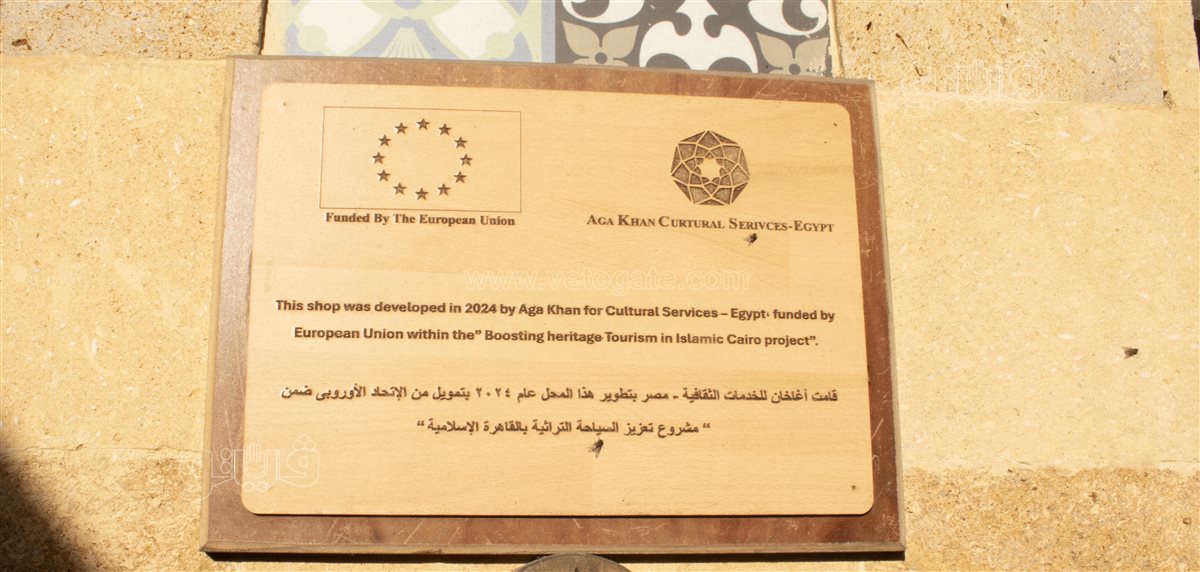 Funded By The European Union
AGA KHAN CURTURAL SERIVCES-EGYPT
www.vetogate.com
This shop was developed in 2024 by Aga Khan for Cultural Services – Egypt، funded by
European Union within the” Boosting heritage Tourism in Islamic Cairo project”.
قامت أغاخان للخدمات الثقافية - مصر بتطوير هذا المحل عام ٢٠٢٤ بتمويل من الإتحاد الأوروبى ضمن
“ مشروع تعزيز السياحة التراثية بالقاهرة الإسلامية “